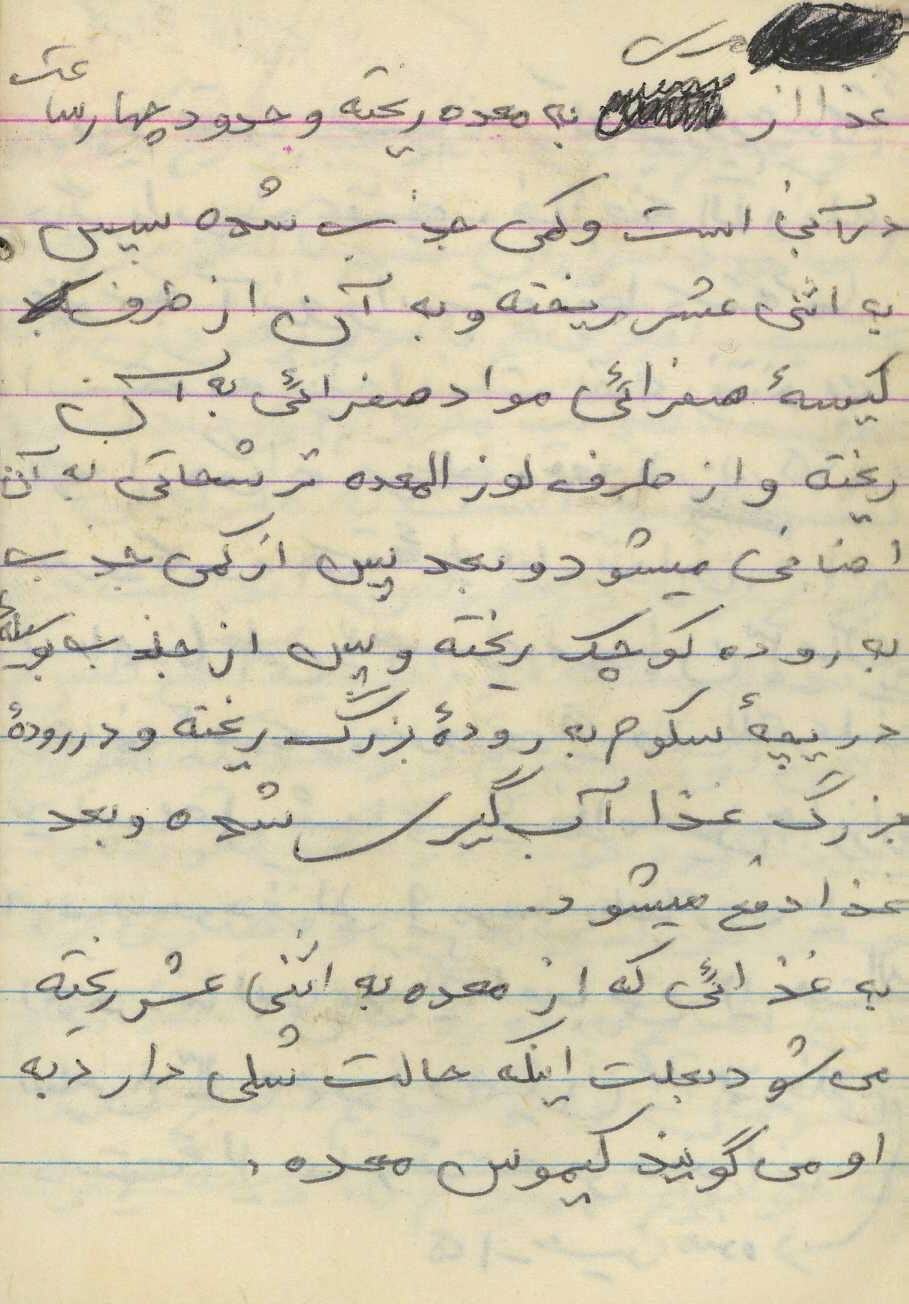 مری
غذا از به معده ریخته و حدود چهار ساعت
در آن است و کمی جذب شده سپس
به اثنی عشر ریخته و به آن از طرف
کیسهٔ صفرائی مواد صفرائی به آن
ریخته و از طرف لوز المعده ترشحاتی به آن
اضافی میشود و بعد پس از کمی جذب
به روده کوچک ریخته و پس از جذب بوسیلهٔ
دریچهٔ سکوم به رودهٔ بزرگ ریخته و در رودهٔ
بزرگ غذا آب گیری شده و بعد
غذا دفع میشود.
به غذائی که از معده به اثنی عشر ریخته
می شود بعلت اینکه حالت شلی دارد به
او می گویند کیموس معده.